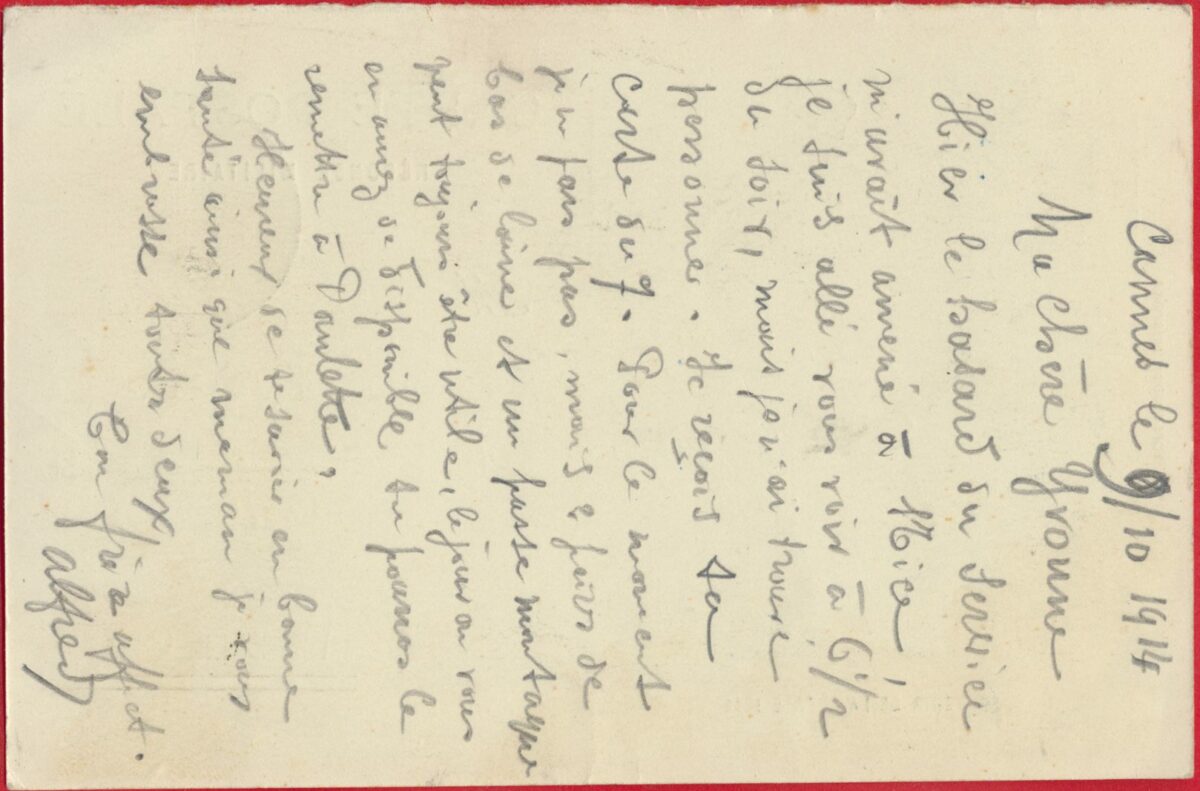 Cannes le 9/10 1914
Ma chère Yvonne
Hier le hasard du service
m'avait amené à Nice,
je suis allé vous voir à 6 1/2
du soir, mais je n'ai trouvé
personne. Je reçois ta
carte du 7. Pour le moment
je n'ai pas, mais 2 paires de
bas de laine et un passe montagne
peut toujours être utile, le jour ou vous
en aurez de disponible tu pourras le
remettre à Paulette.
Heureux de te savoir en bonne
santé ainsi que maman je vous
embrasse toutes deux
Ton frère affect.
Alfred